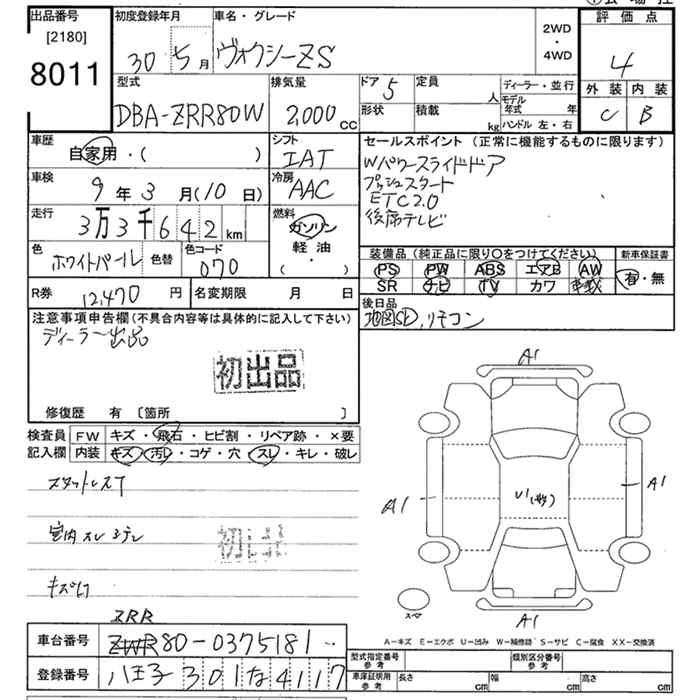 出品番号
[2180]
8011
初度登録年月
30 5月
車名・グレード
ヴォクシーZS
2WD
・
4WD
評価点
4
外装 内装
C B
型式
DBA-ZRR80W
排気量
2,000cc
ドア 5
形状
定員 人
積載 kg
ディーラー・並行
モデル年式 年
ハンドル 左・右
車歴
自家用・( )
シフト
IAT
車検
9年3月(10日)
冷房
AAC
走行
3万3千642km
燃料
ガソリン
軽油
( ・ )
色
ホワイトパール
色替
色コード
070
セールスポイント (正常に機能するものに限ります)
Wパワースライドドア
プッシュスタート
ETC2.0
後席テレビ
装備品 (純正品に限り〇をつけてください)
PS PW ABS エアB AW
SR ナビ TV カワ
新車保証書
有・無
R券 12,470円
名変期限 月 日
後日品
地図SD,リモコン
注意事項申告欄(不具合内容等は具体的に記入して下さい)
ディーラー出品
初出品
修復歴 有 〔箇所 〕
検査員
記入欄
FW キズ・飛石・ヒビ割・リペア跡・×要
内装 キズ・汚レ・コゲ・穴・スレ・キレ・破レ
室内スレ
初出品
A1
A1
A1
U1
A1
スペア
A-キズ E-エクボ U-凹み W-補修跡 S-サビ C-腐食 XX-交換済
ZRR
車台番号 ZWR80-0375181
登録番号 八王子 301 な 4117
型式指定番号
参考
類別区分番号
参考
車庫証明用
参考
長さ cm 幅 cm 高さ cm